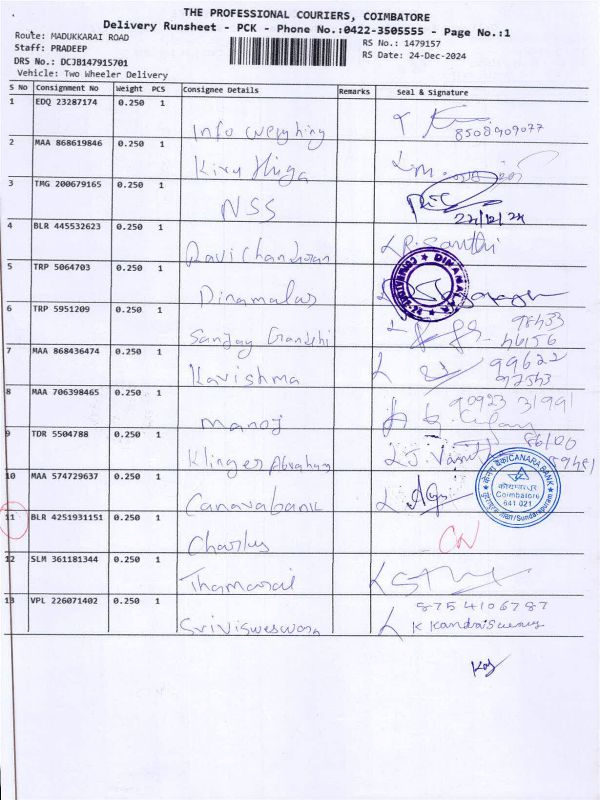 THE PROFESSIONAL COURIERS, COIMBATORE
Delivery Runsheet - PCK - Phone No.:0422-3505555 - Page No.:1
Route: MADUKKARAI ROAD
RS No.: 1479157
Staff: PRADEEP
RS Date: 24-Dec-2024
DRS No.: DCJB147915701
Vehicle: Two Wheeler Delivery
S No Consignment No Weight PCS Consignee Details Remarks Seal & Signature
1 EDQ 23287174 0.250 1
Info weryhing
8508909077
2 MAA 868619846 0.250 1
3 TMG 200679165 0.250 1
NSS
24/12/24
4 BLR 445532623 0.250 1
Ravichandran
R. Santhi
5 TRP 5064703 0.250 1
Dinamalar
DINAMALAR
COIMBATORE
6 TRP 5951209 0.250 1
Sanjay Gandhi
98433
46156
7 MAA 868436474 0.250 1
Kavishma
99622
97543
8 MAA 706398465 0.250 1
Manoj
90923 31991
9 TDR 5504788 0.250 1
Klinger Abraham
86100
10 MAA 574729637 0.250 1
Canarabank
CANARA BANK
कोयम्बत्तूर
Coimbatore
641 021
Sundarapuram
11 BLR 4251931151 0.250 1
Charles
CN
12 SLM 361181344 0.250 1
Thamarai
13 VPL 226071402 0.250 1
8754106787
Sri Visweswara
K Kandaiswamy